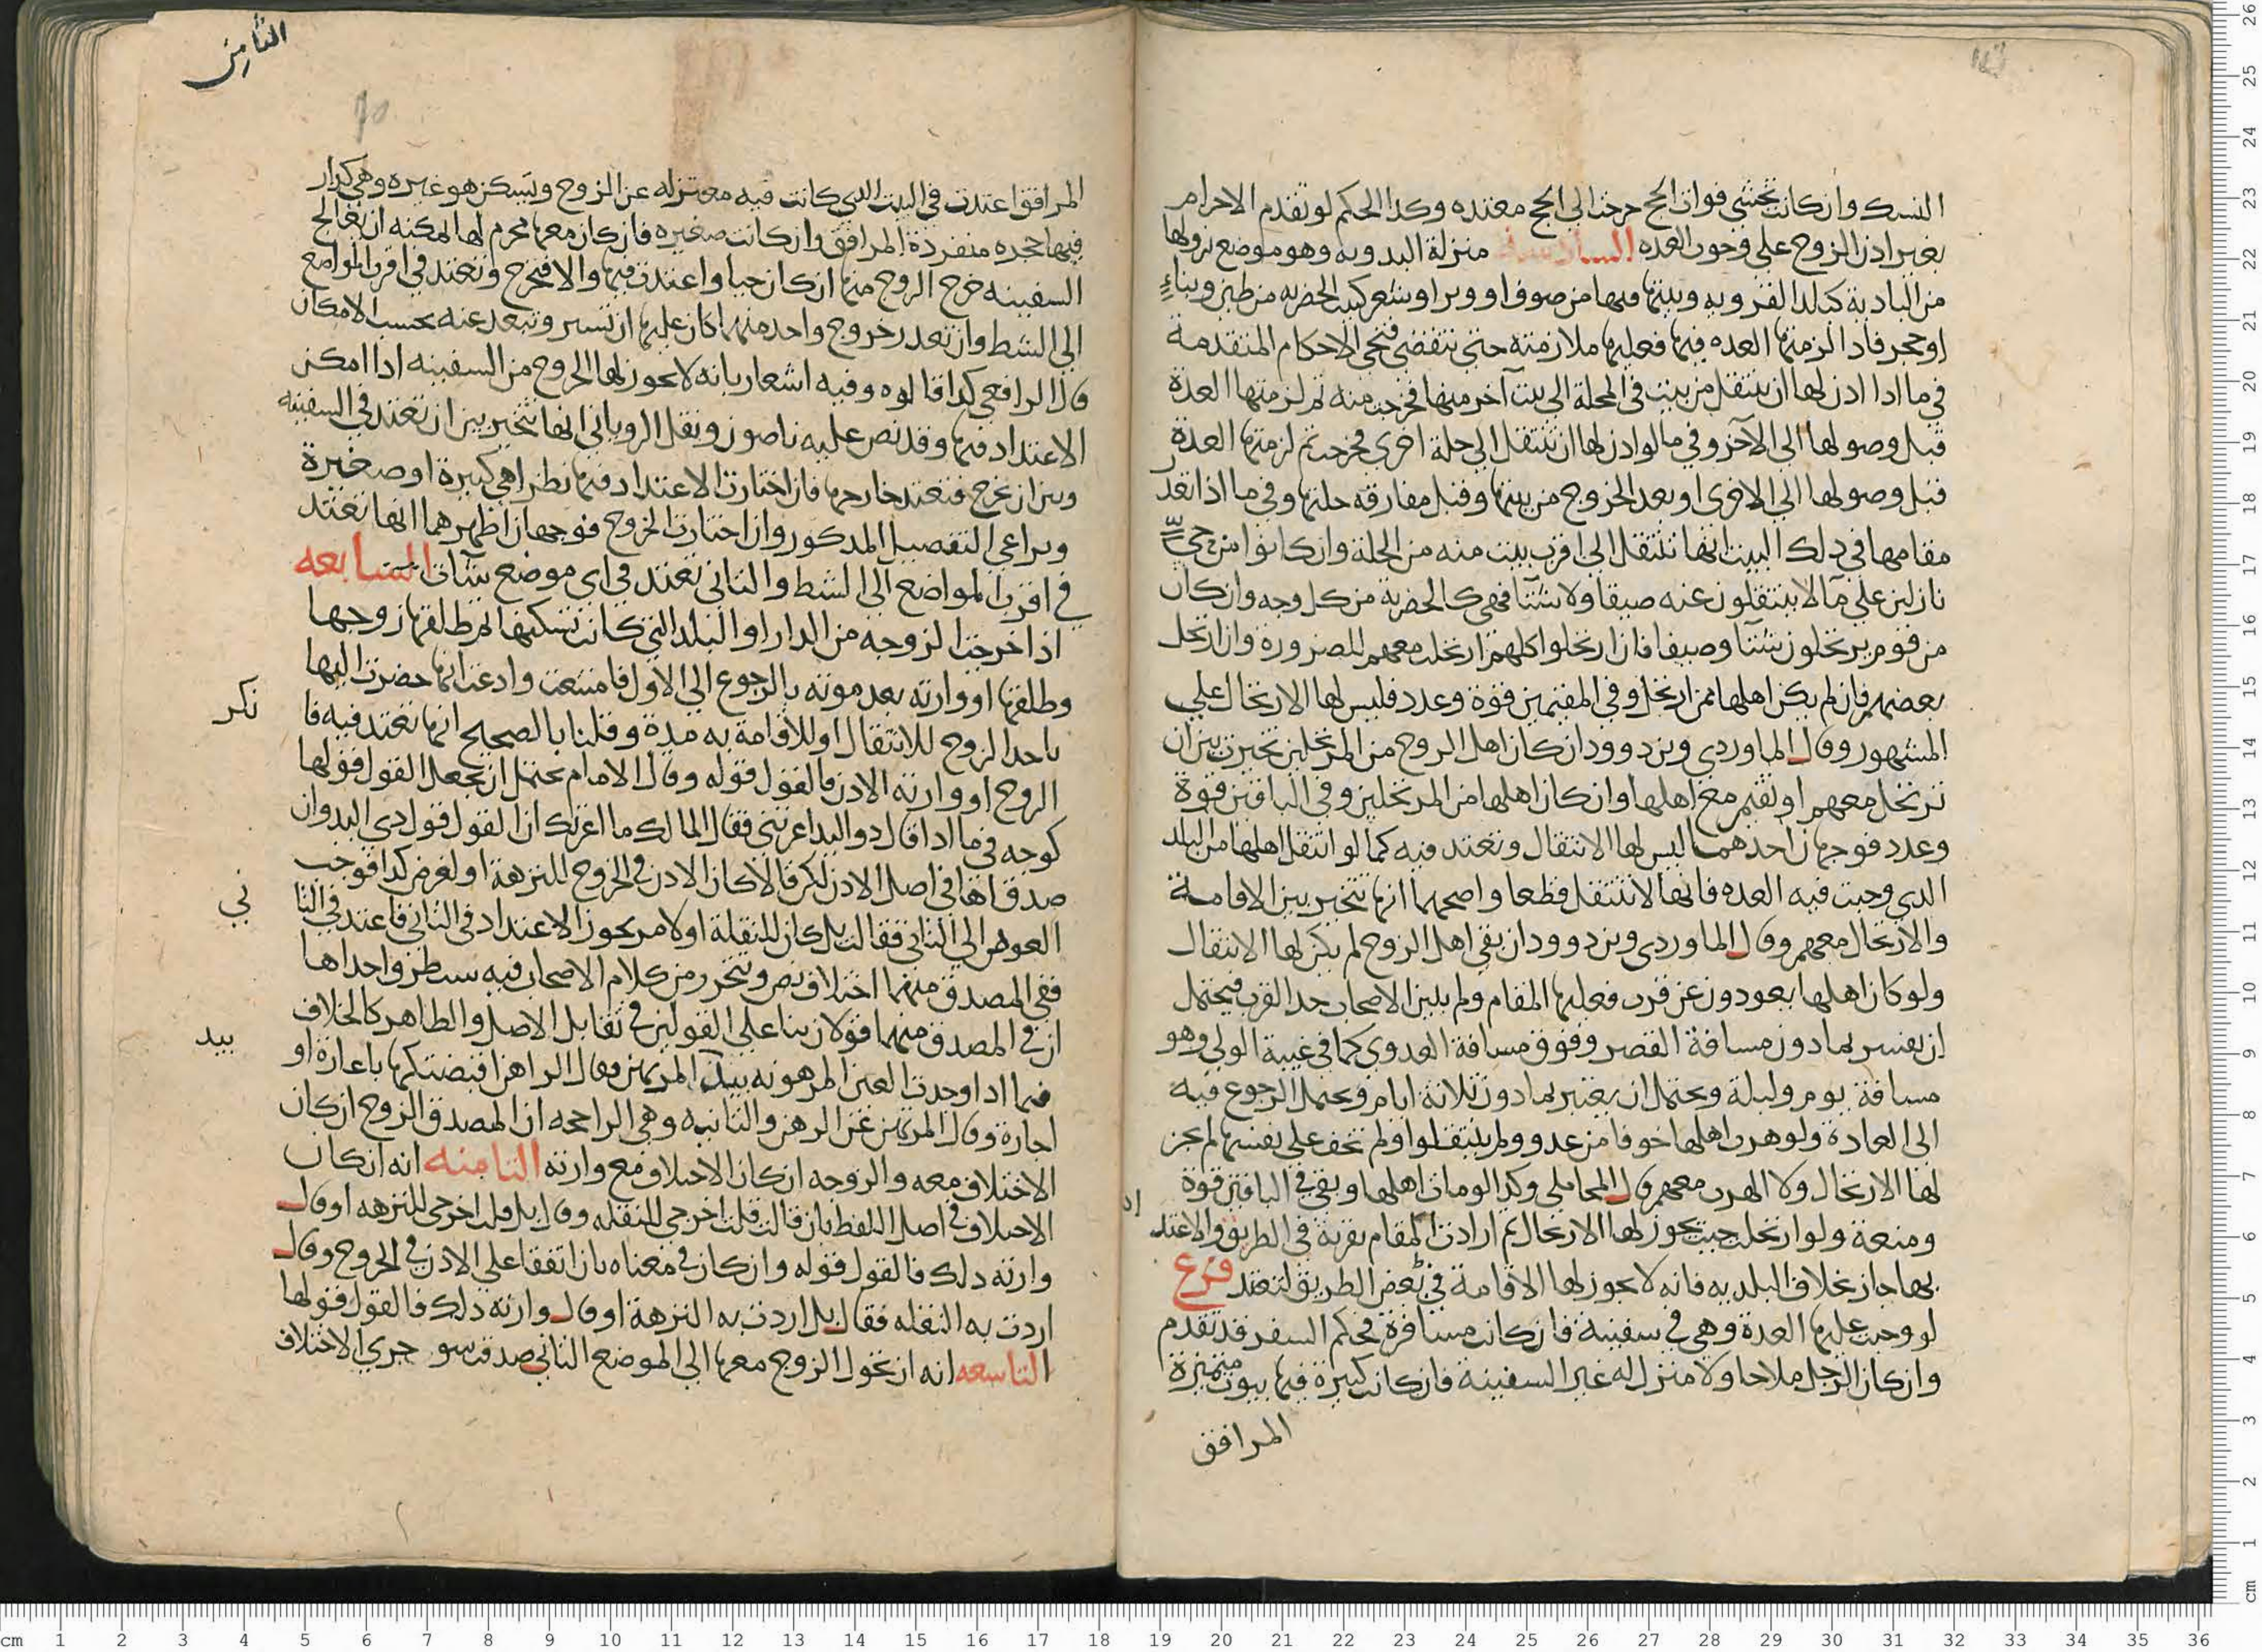 النسك وان كانت تخشي فوات الحج خرجت الي الحج معتده وكذا الحكم لو تقدم الاحرام
بغير اذن الزوج علي وجوب العده السادسة منزلة البدويه وهو موضع نزولها
من البادية كبلد القرويه وبيتها فيها من صوف او وبر او شعر كبيت الحضريه من طين وبناءٍ
او حجر فاذا لزمتها العده فيها فعليها ملازمته حتي تنقضي فتجي الاحكام المتقدمة
في ما اذا اذن لها ان تنتقل من بيت في المحلة الي بيت آخر منها فخرجت منه ثم لزمتها العدة
قبل وصولها الي الآخر وفي ما لو اذن لها ان تنتقل الي حلة اخري فخرجت ثم لزمتها العدة
قبل وصولها الي الاخري او بعد الخروج من بيتها وقبل مفارقه حلتها وفي ما اذا تعذر
مقامها في ذلك البيت انها تنتقل الي اقرب بيت منه من الحلة وان كانوا من حيٍّ
نازلين علي مآ لا ينتقلون عنه صيفا ولا شتآ فهي كالحضرية من كل وجه وان كان
من قوم يرتحلون شتآ وصيفا فان ارتحلوا كلهم ارتحلت معهم للضرورة وان ارتحل
بعضهم فان لم يكن اهلها ممن ارتحل وفي المقيمين قوة وعدد فليس لها الارتحال علي
المشهور وقال الماوردي وبزدوود ان كان اهل الزوج من المرتحلين تخيرت بين ان
ترتحل معهم او تقيم مع اهلها وان كان اهلها من المرتحلين وفي الباقين قوة
وعدد فوجهان احدهما ليس لها الانتقال وتعتد فيه كما لو انتقل اهلها من البلد
الذي وجبت فيه العده فانها لا تنتقل قطعا واصحهما انها تتخير بين الاقامة
والارتحال معهم وقال الماوردي وبزدوود ان بقي اهل الزوج لم يكن لها الانتقال
ولو كان اهلها يعودون عن قرب فعليها المقام ولم يبين الاصحاب حد القرب فيحتمل
ان يفسر بما دون مسافة القصر وفوق مسافة العدوي كما في غيبة الولي وهو
مسافة يوم وليلة ويحتمل ان يعتبر بما دون ثلاثة ايام ويحتمل الرجوع فيه
الي العادة ولو هرب اهلها خوفا من عدو ولم ينتقلوا ولم تخف علي نفسها لم يجز
لها الارتحال ولا الهرب معهم قال المحاملي وكذا لو مات اهلها وبقي في الباقين قوة
ومنعة ولو ارتحلت حيث يجوز لها الارتحال ثم ارادت المقام بقرية في الطريق والاعتد
اد
بها جاز بخلاف البلديه فانه لا يجوز لها الاقامة في بعض الطريق لتعتد فرع
لو وجبت عليها العدة وهي في سفينة فان كانت مسافرة فحكم السفر قد تقدم
وان كان الرجل ملاحا ولا منزل له غير السفينة فان كانت كبيرة فيها بيوت متميزة
المرافق
الثامن
المرافق اعتدت في البيت الذي كانت فيه معتزله عن الزوج ويسكن هو غيره وهي كدار
فيها حجره منفردة المرافق وان كانت صغيره فان كان معها محرم لها يمكنه ان يعالج
السفينه خرج الزوج منها ان كان حيا واعتدت فيها والا فتخرج وتعتد في اقرب المواضع
الي الشط وان تعذر خروج واحد منهما كان عليها ان تستر وتبعد عنه بحسب الامكان
قال الرافعي كذا قالوه وفيه اشعار بانه لا يجوز لها الخروج من السفينه اذا امكن
الاعتداد فيها وقد نص عليه ناصون ونقل الروياني انها تتخير بين ان تعتد في السفينه
وبين ان تخرج فتعتد خارجها فان اختارت الاعتداد فيها نظر اهي كبيرة او صغيرة
ويراعي التفصيل المذكور وان اختارت الخروج فوجهان اظهرهما انها تعتد
في اقرب المواضع الي الشط والثاني تعتد في اي موضع شآت السابعه
اذا خرجت الزوجه من الدار او البلد التي كانت تسكنها ثم طلقها زوجها
وطلقها او وارثه بعد موته بالرجوع الي الاول فامتنعت وادعت انها حضرت اليها
باحد الزوج للانتقال او للاقامة به مدة وقلنا بالصحيح انها تعتد فيه فا
نكر
الزوج او وارثه الاذن فالقول قوله وقال الامام يحتمل ان يجعل القول قولها
كوجه في ما اذا قال ذو اليد اعرتني فقال المالك ما اعرتك ان القول قول ذي اليد وان
صدقاها في اصل الاذن لكن قالا كان الاذن في الخروج للنزهة او لغرض كذا فوجب
العود الي الثاني فقالت بل كان للنقلة او لامر يجوز الاعتداد في الثاني فاعتد في الثا
ني
ففي المصدق منهما اختلاف نص ويتحرر من كلام الاصحاب فيه ست طرق احداها
ان في المصدق منهما قولان بنا علي القولين في تقابل الاصل والظاهر كالخلاف
فيما اذا وجدت العين المرهونه بيد المرتهن فقال الراهن اقبضتكها باعارة او
بيد
اجارة وقال المرتهن عن الرهن والثانيه وهي الراجحه ان المصدق الزوج ان كان
الاختلاف معه والزوجه ان كان الاختلاف مع وارثه الثامنه انه ان كان
الاختلاف في اصل اللفظ بان قالت قلت اخرجي للنقله وقال بل قلت اخرجي للنزهه او قال
وارثه ذلك فالقول قوله وان كان في معناه بان اتفقا علي الاذن في الخروج وقال
اردت به النقله فقال بل اردت به النزهة او قال وارثه ذلك فالقول قولها
التاسعه انه ان تحول الزوج معها الي الموضع الثاني صدقت سو جري الاختلاف